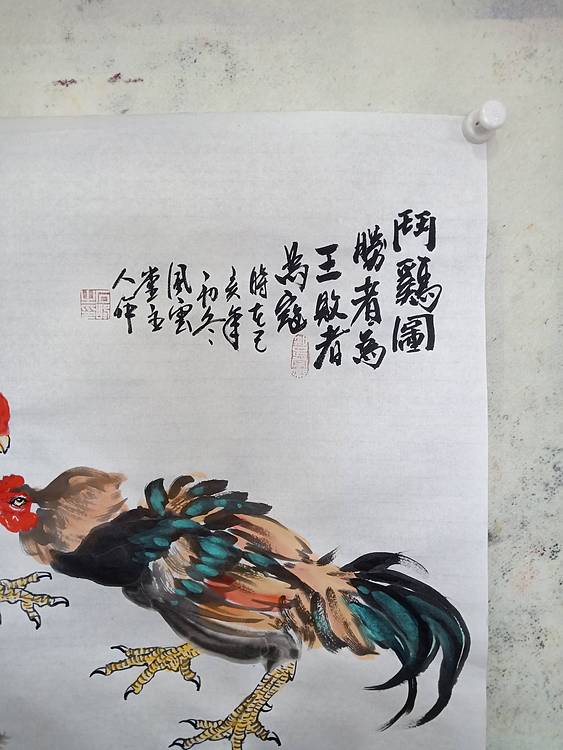 鬥鷄圖
勝者為
王敗者
為寇
時在己
亥年
初冬
風雲
堂主
人